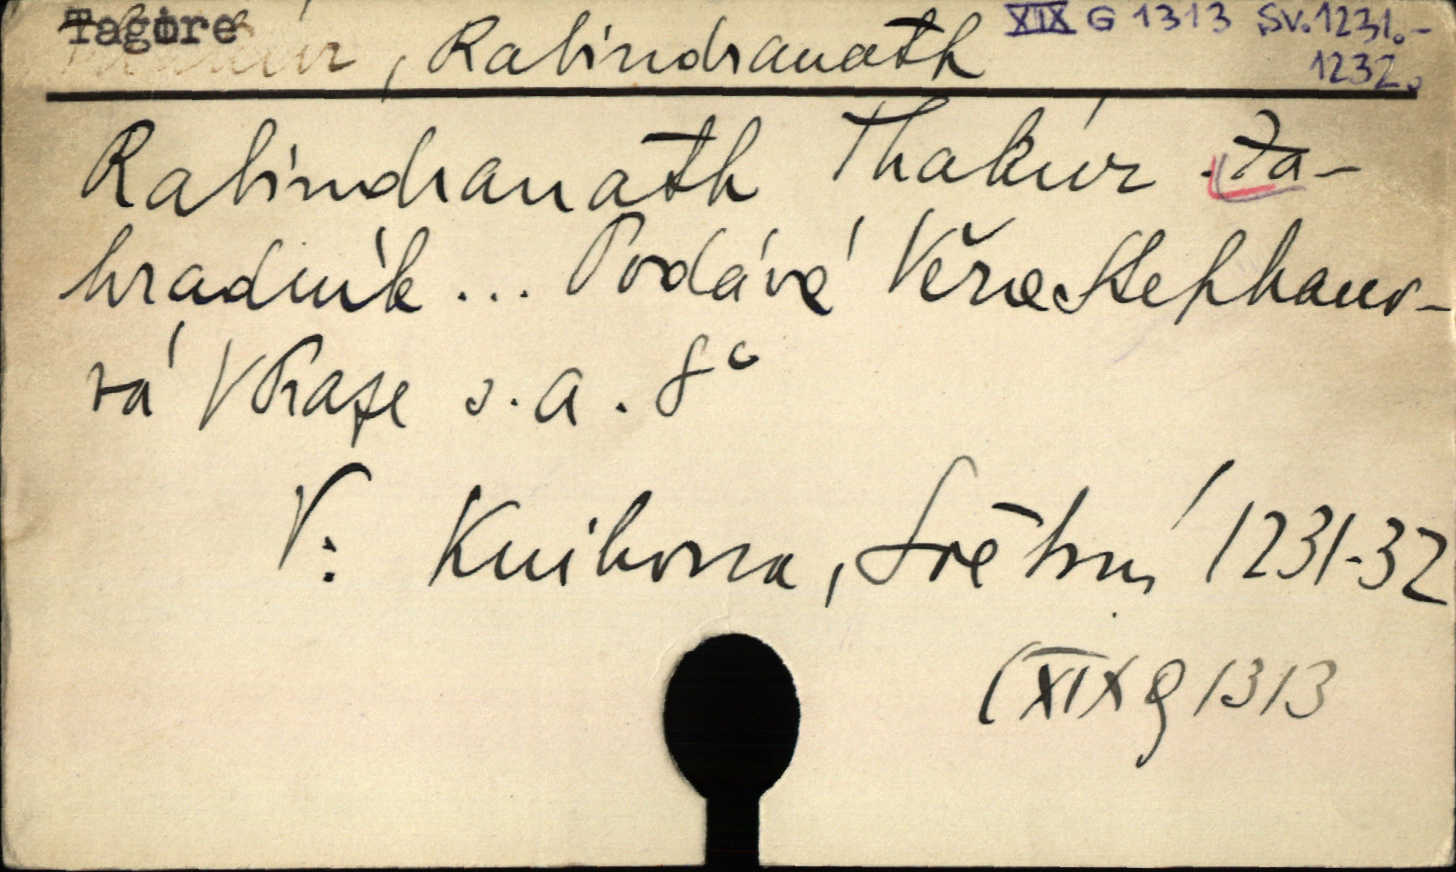 Tagore, Rabindranath XIX G 1313 Sv. 1231.-
1232.
Rabindranath Thakúr Za-
hradník ... Podává Věra Stephano-
vá V Praze s. a. 8°
V: Knihovna, Světová 1231-32
(XIX G 1313